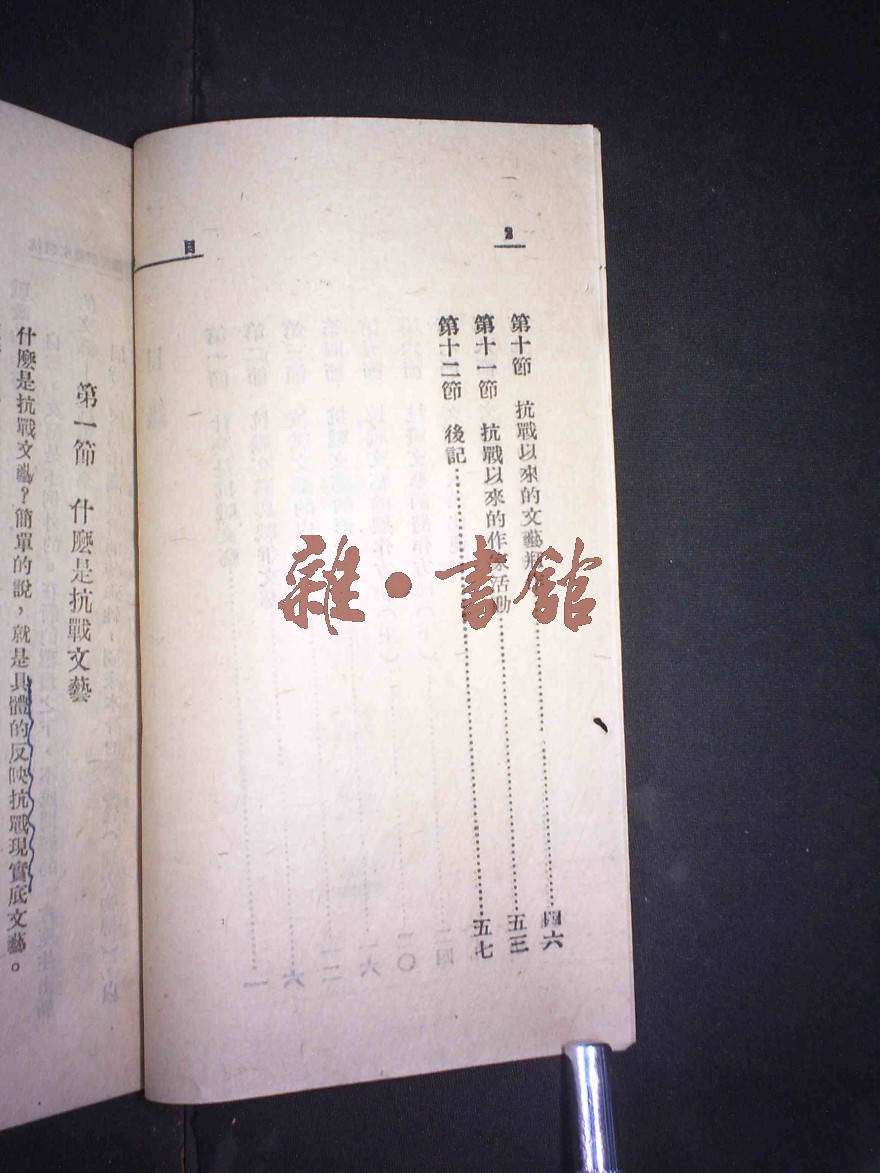 2
目
第十節 抗戰以來的文藝…………四六
第十一節 抗戰以來的作家活動…………五三
第十二節 後記…………五七
第一節 什麼是抗戰文藝
什麼是抗戰文藝？簡單的說，就是具體的反映抗戰現實底文藝。
雜·書館